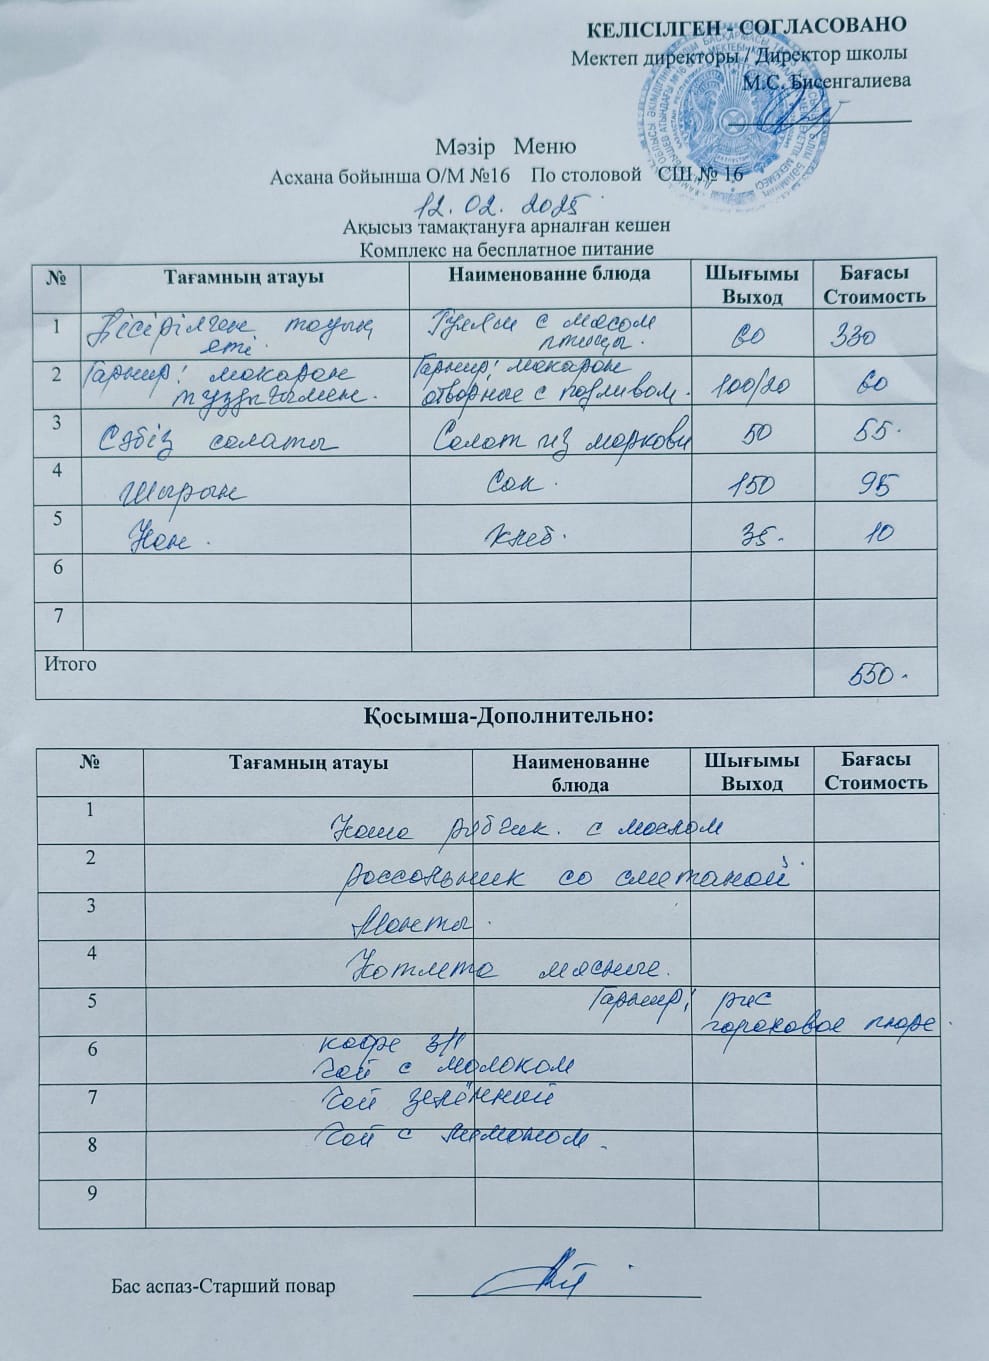 КЕЛІСІЛГЕН - СОГЛАСОВАНО
Мектеп директоры / Директор школы
М.С. Бисенгалиева
Мәзір Меню
Асхана бойынша О/М №16 По столовой СШ № 16
12.02.2025
Ақысыз тамақтануға арналған кешен
Комплекс на бесплатное питание
№ Тағамның атауы Наименованне блюда Шығымы Выход Бағасы Стоимость
1 Пісірілген тауық еті. Гуляш с мясом птицы. 60 330
2 Гарнир: макарон тұздығымен. Гарнир: макарон отворные с подливом. 100/20 60
3 Сәбіз салаты Салат из моркови 50 55.
4 Шырын Сок. 150 95
5 Нан. Хлеб. 35. 10
6
7
Итого 550.
Қосымша-Дополнительно:
№ Тағамның атауы Наименованне блюда Шығымы Выход Бағасы Стоимость
1 Каша с маслом
2 рассольник со сметаной
3 Манты.
4 Котлета мясные.
5 Гарнир: рис
гороховое пюре.
6 кофе 3/1
чай с молоком
7 чай зелённый
8 чай с лимоном.
9
Бас аспаз-Старший повар